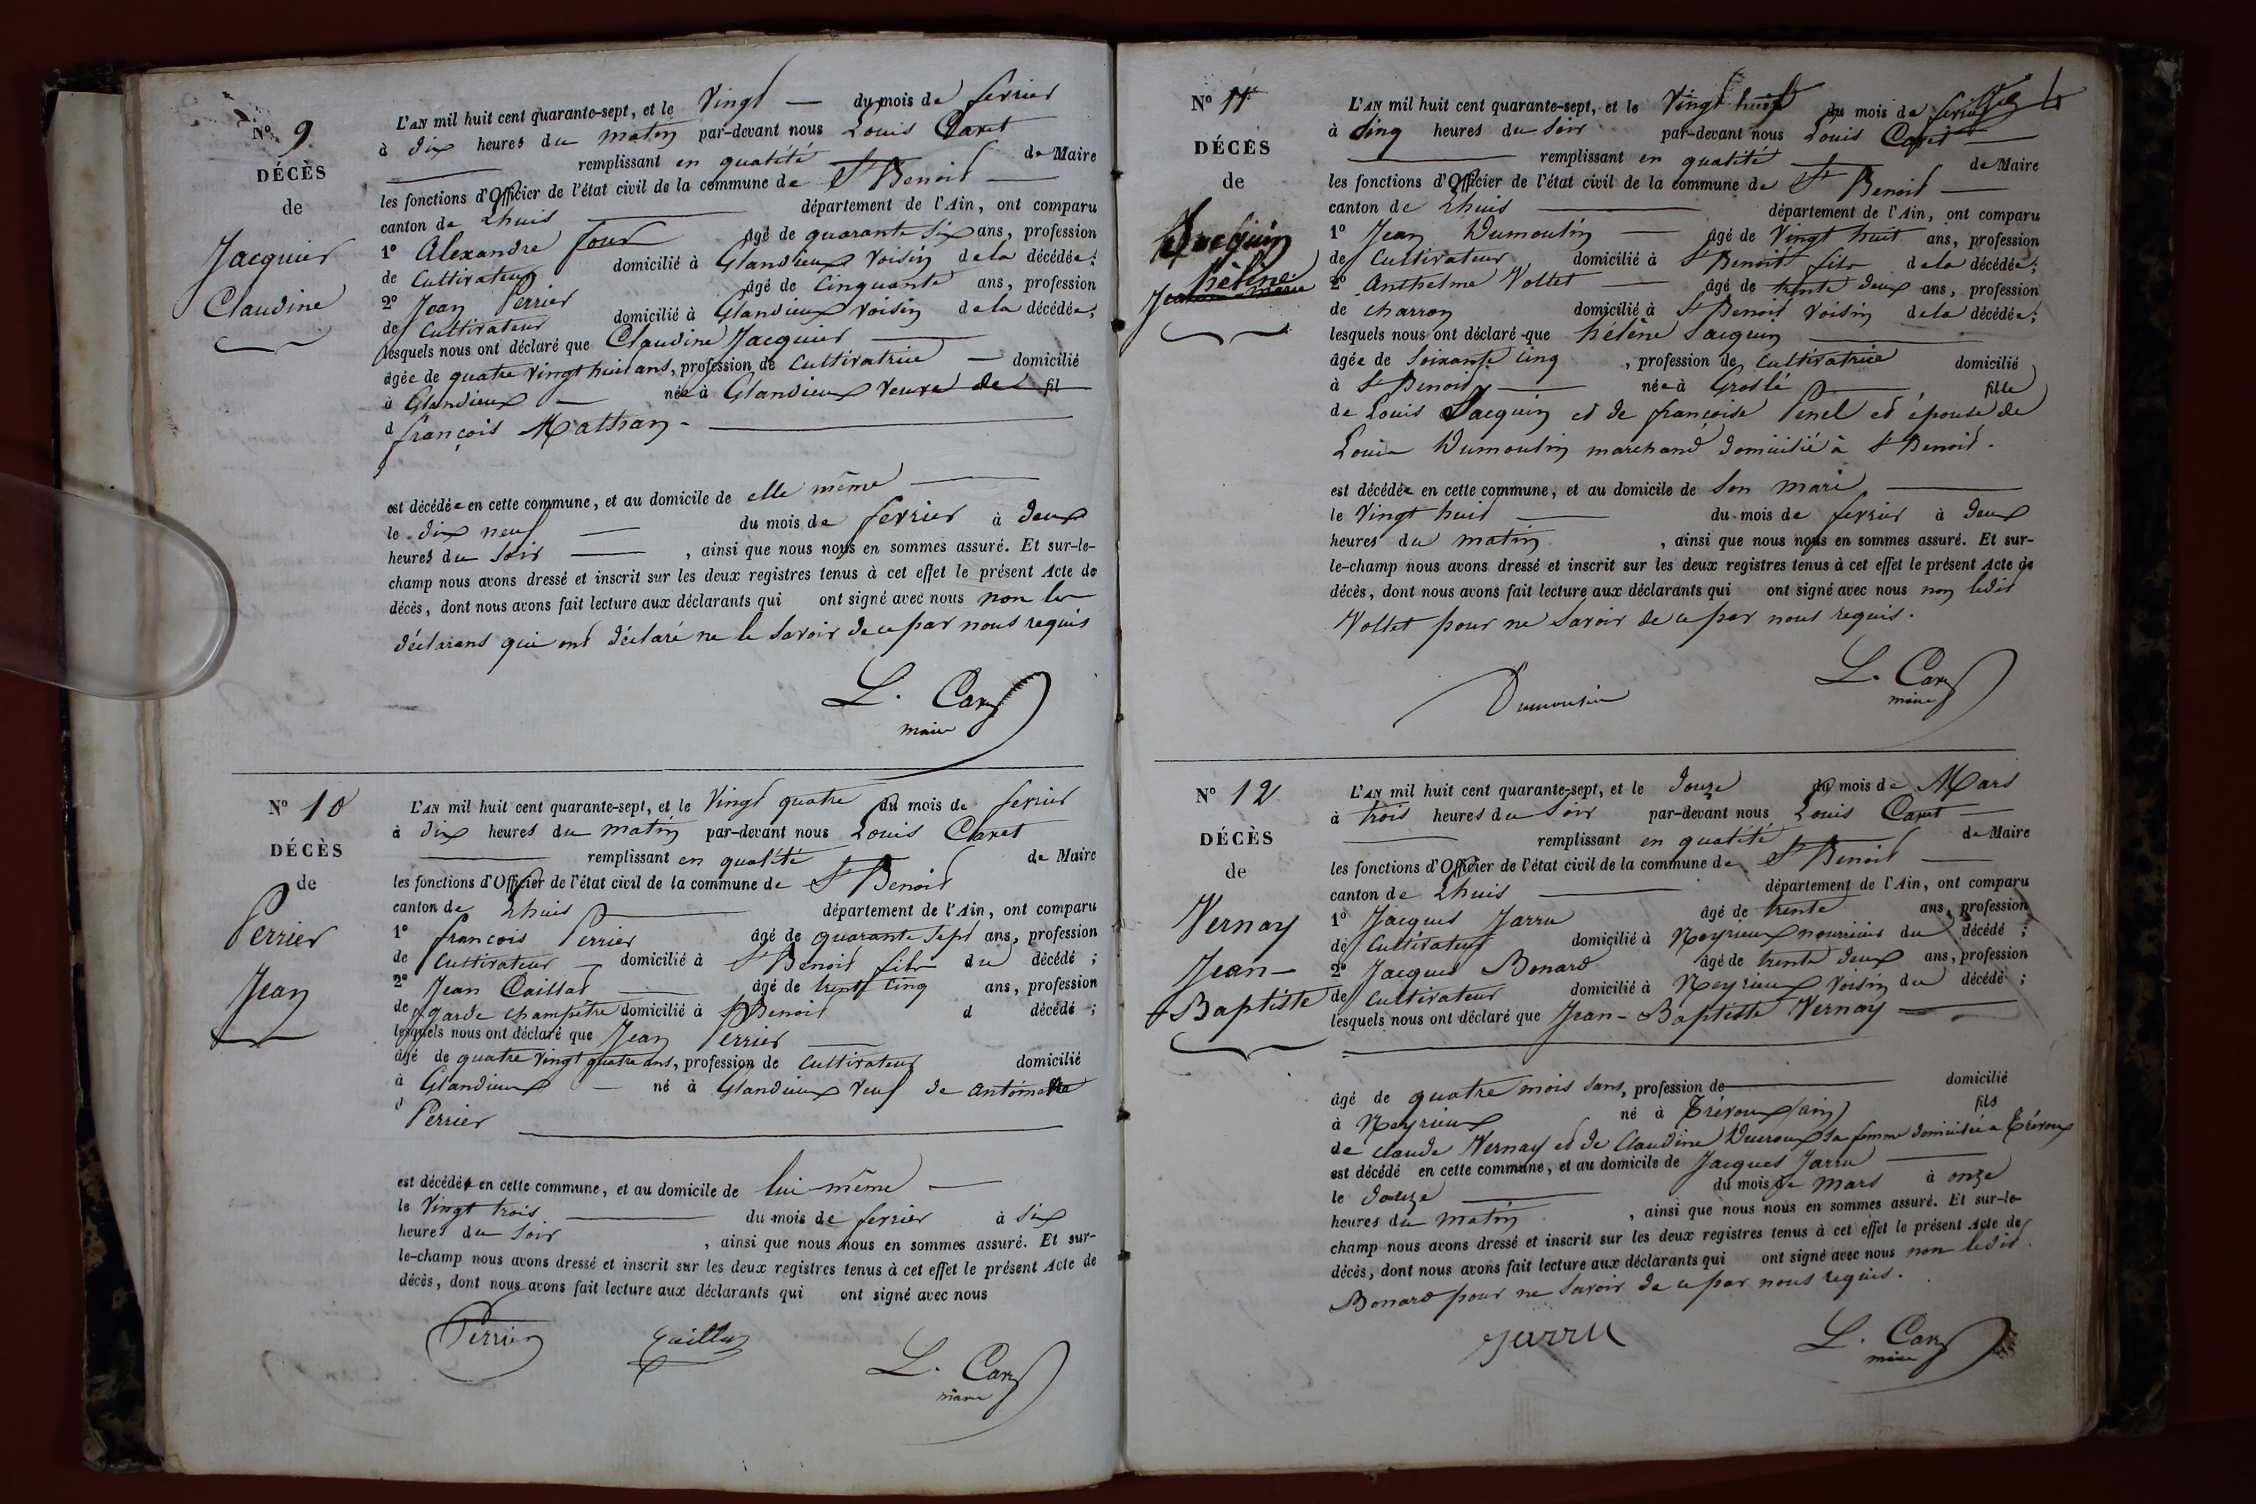 N° 9
DÉCÈS
de
Jacquier
Claudine
L'AN mil huit cent quarante-sept, et le vingt — du mois de fevrier
à dix heures du matin par-devant nous Louis Caret
remplissant en qualité de Maire
les fonctions d'Officier de l'état civil de la commune de St Benoit
canton de Lhuis département de l'Ain, ont comparu
1° Alexandre Jour âgé de quarante six ans, profession
de cultivateur domicilié à Glandieux voisin de la décédée;
2° Jean Perrier âgé de cinquante ans, profession
de cultivateur domicilié à Glandieux voisin de la décédée;
lesquels nous ont déclaré que Claudine Jacquier
âgée de quatre vingt huit ans, profession de cultivatrice — domicilié
à Glandieux — née à Glandieux veuve de fil
d françois Mathan
est décédée en cette commune, et au domicile de elle même
le dix neuf du mois de fevrier à deux
heures du soir , ainsi que nous nous en sommes assuré. Et sur-le-
champ nous avons dressé et inscrit sur les deux registres tenus à cet effet le présent Acte de
décès, dont nous avons fait lecture aux déclarants qui ont signé avec nous non les
déclarans qui ont déclaré ne le savoir de ce par nous requis
L. Caret
maire
N° 10
DÉCÈS
de
Perrier
Jean
L'AN mil huit cent quarante-sept, et le vingt quatre du mois de fevrier
à dix heures du matin par-devant nous Louis Caret
remplissant en qualité de Maire
les fonctions d'Officier de l'état civil de la commune de St Benoit
canton de Lhuis département de l'Ain, ont comparu
1° francois Perrier âgé de quarante sept ans, profession
de cultivateur — domicilié à St Benoit fils du décédé ;
2° Jean Caillat âgé de trente cinq ans, profession
de garde champêtre domicilié à St Benoit d décédé ;
lesquels nous ont déclaré que Jean Perrier
âgé de quatre vingt quatre ans, profession de cultivateur domicilié
à Glandieux — né à Glandieux veuf de antoinette
d Perrier
est décédé en cette commune, et au domicile de lui même —
le vingt trois du mois de fevrier à six
heures du soir , ainsi que nous nous en sommes assuré. Et sur-
le-champ nous avons dressé et inscrit sur les deux registres tenus à cet effet le présent Acte de
décès, dont nous avons fait lecture aux déclarants qui ont signé avec nous
Perrier Caillat L. Caret
maire
N° 11
DÉCÈS
de
Jacquin
hélène
L'AN mil huit cent quarante-sept, et le vingt huit du mois de fevrier
à cinq heures du soir par-devant nous Louis Caret
remplissant en qualité de Maire
les fonctions d'Officier de l'état civil de la commune de St Benoit
canton de Lhuis département de l'Ain, ont comparu
1° Jean Dumoulin âgé de vingt huit ans, profession
de cultivateur domicilié à St Benoit fils de la décédée;
2° Anthelme Vollet âgé de trente deux ans, profession
de charron domicilié à St Benoit voisin de la décédée;
lesquels nous ont déclaré que hélène Jacquin
âgée de soixante cinq , profession de cultivatrice domicilié
à St Benoit née à Groslé fille
de Louis Jacquin et de françoise Penel et épouse de
Louis Dumoulin marchand domicilié à St Benoit.
est décédée en cette commune, et au domicile de son mari
le vingt huit du mois de fevrier à deux
heures du matin , ainsi que nous nous en sommes assuré. Et sur-
le-champ nous avons dressé et inscrit sur les deux registres tenus à cet effet le présent Acte de
décès, dont nous avons fait lecture aux déclarants qui ont signé avec nous non ledit
Vollet pour ne savoir de ce par nous requis.
Dumoulin L. Caret
maire
N° 12
DÉCÈS
de
Vernay
Jean-
Baptiste
L'AN mil huit cent quarante-sept, et le douze du mois de Mars
à trois heures du soir par-devant nous Louis Caret
remplissant en qualité de Maire
les fonctions d'Officier de l'état civil de la commune de St Benoit
canton de Lhuis département de l'Ain, ont comparu
1° Jacques Jarru âgé de trente ans, profession
de cultivateur domicilié à Neyrieux nourricier du décédé ;
2° Jacques Bonard âgé de trente deux ans, profession
de cultivateur domicilié à Neyrieux voisin du décédé ;
lesquels nous ont déclaré que Jean-Baptiste Vernay
âgé de quatre mois sans, profession de domicilié
à Neyrieux né à Trévoux (ain) fils
de claude Vernay et de Claudine Ducroux sa femme domiciliée a Trévoux
est décédé en cette commune, et au domicile de Jacques Jarru
le douze du mois de mars à onze
heures du matin , ainsi que nous nous en sommes assuré. Et sur-le-
champ nous avons dressé et inscrit sur les deux registres tenus à cet effet le présent Acte de
décès, dont nous avons fait lecture aux déclarants qui ont signé avec nous non ledit
Bonard pour ne savoir de ce par nous requis.
Jarru L. Caret
maire